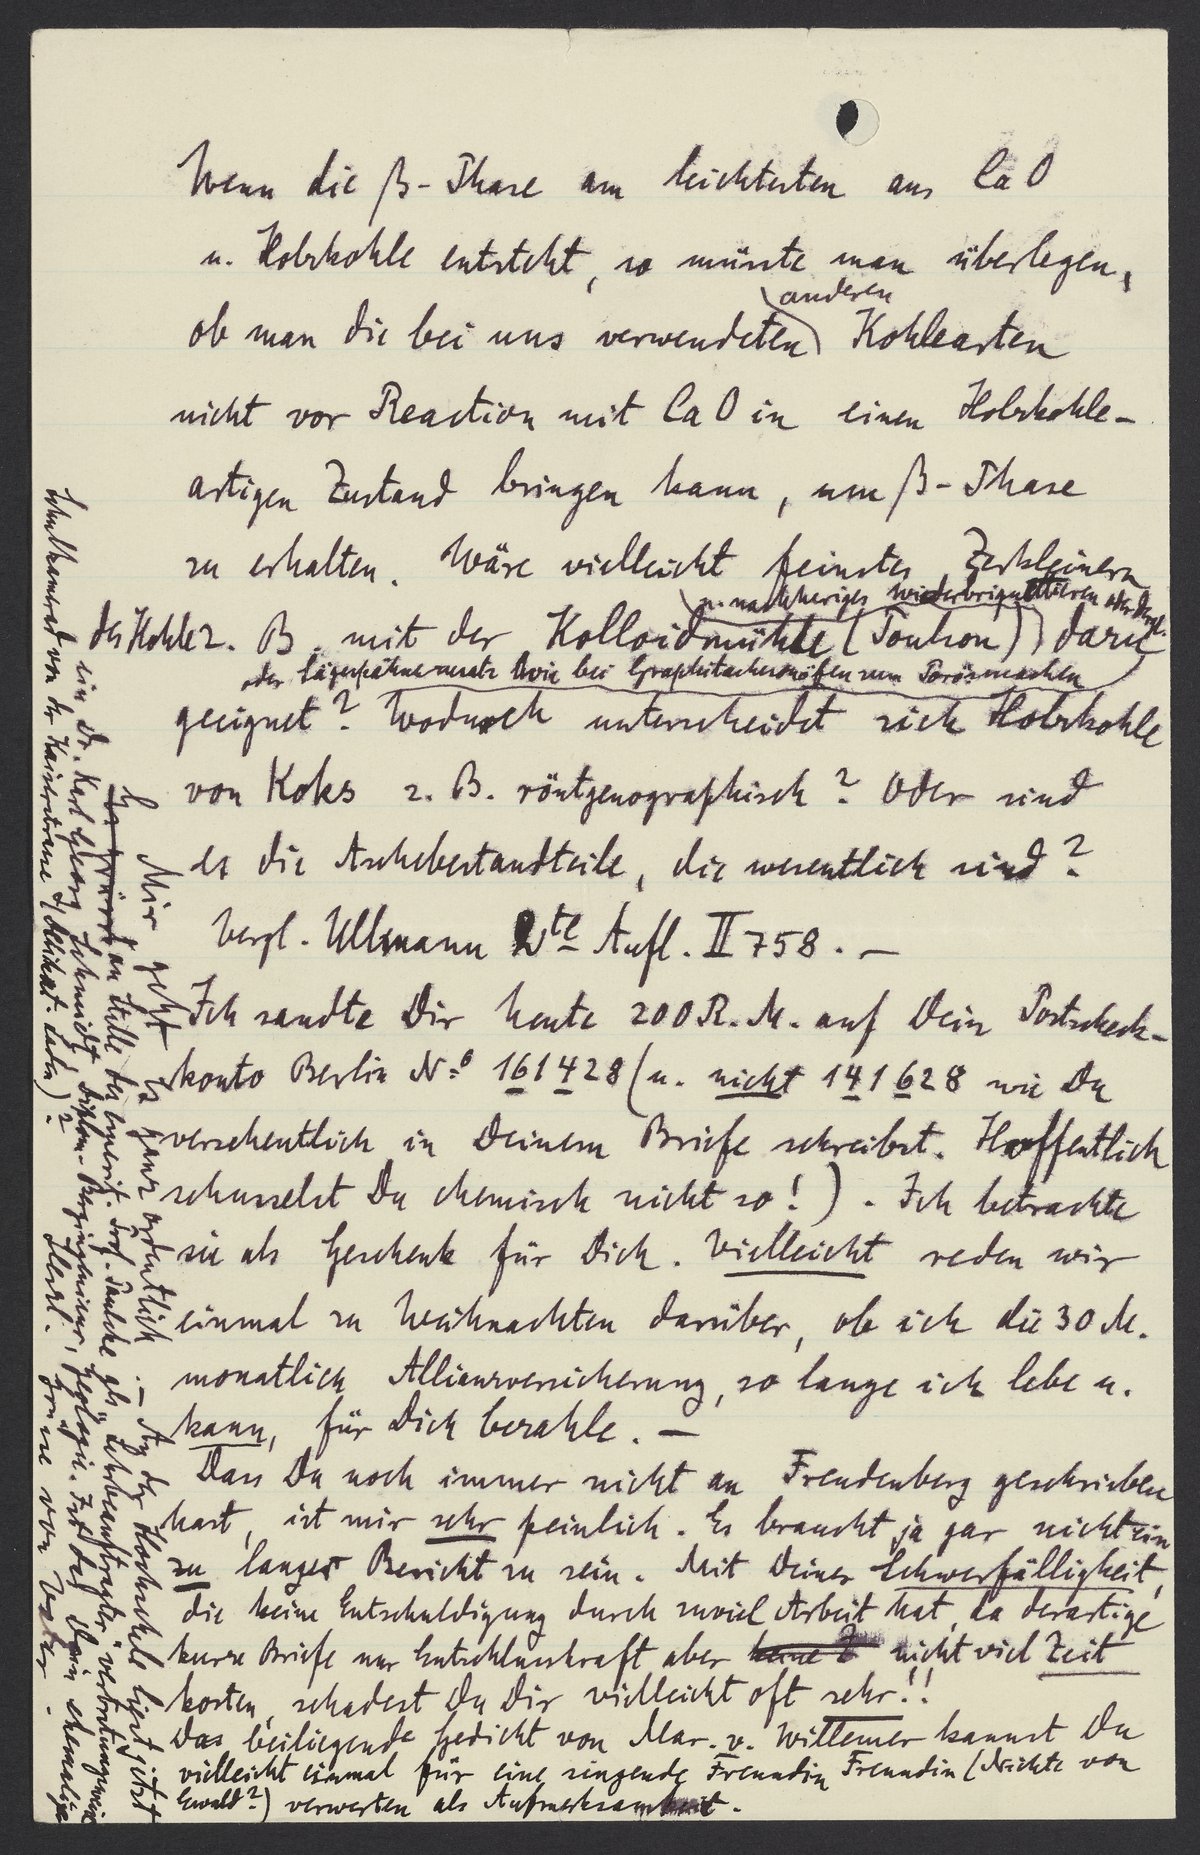 Wenn die β-Phase am leichtesten aus CaO
u. Holzkohle entsteht, so müsste man überlegen,
anderen
ob man die bei uns verwendeten Kohlearten
nicht vor Reaction mit CaO in einen Holzkohle-
artigen Zustand bringen kann, um β-Phase
zu erhalten. Wäre vielleicht feinstes Zerkleinern
u. nachheriges Wiederbrikettieren oder dergl.
der Kohle z. B. mit der Kolloidmühle (Toulson) dazu
oder Sägespähnezusatz wie bei Graphitachesonöfen zum Porösmachen
geeignet? Wodurch unterscheidet sich Holzkohle
von Koks z. B. röntgenographisch? Oder sind
es die Aschebestandteile, die wesentlich sind?
Vergl. Ullmann 2te Aufl. II 758. —
Ich sandte Dir heute 200 R. M. auf Dein Postscheck-
konto Berlin No 161428 (u. nicht 141628 wie Du
versehentlich in Deinem Briefe schreibst. Hoffentlich
schusselst Du chemisch nicht so!). Ich betrachte
sie als Geschenk für Dich. Vielleicht reden wir
einmal zu Weihnachten darüber, ob ich die 30 M.
monatlich Allianzversicherung, so lange ich lebe u.
kann, für Dich bezahle. —
Dass Du noch immer nicht an Freudenberg geschrieben
hast, ist mir sehr peinlich. Es braucht ja gar nicht ein
zu langer Bericht zu sein. Mit Deiner Schwerfälligkeit,
die keine Entschuldigung durch zuviel Arbeit hat, da derartige
kurze Briefe nur Entschlusskraft aber keine Z nicht viel Zeit
kosten, schadest Du Dir vielleicht oft sehr!!
Das beiliegende Gedicht von Mar. v. Willemer kannst Du
vielleicht einmal für eine singende Freundin Freundin (Nichte von
Ewald?) verwerten als Aufmerksamkeit.
Mir geht es ganz ordentlich. — An der Hochschule liest jetzt
an Stelle des emerit. Prof. Paulcke als "Lehrbeauftragter" vertretungsweise
ein Dr. Karl Georg Schmidt, Diplom-Bergingenieur, Geologie. Ist das Dein ehemaliger
Schulkamerad von der Kaiserstrasse (Delikat. Laden)? Herzl. Grüsse von Vater.